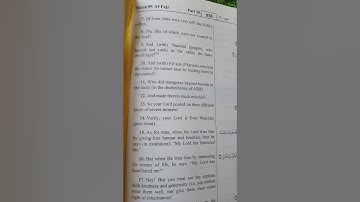 Sûrah 89. Al-Fajr Part 30 839
7. Of Iram (who were very tall) like (lofty) pillars,
8. The like of which were not created in the land?
9. And (with) Thamûd (people), who hewed out rocks in the valley (to make dwellings)?
10. And (with) Fir'aun (Pharaoh) who had the stakes (to torture men by binding them to the stakes)?
11. Who did transgress beyond bounds in the lands (in the disobedience of Allâh).
12. And made therein much mischief.
13. So your Lord poured on them different kinds of severe torment.
14. Verily, your Lord is Ever Watchful (over them).
15. As for man, when his Lord tries him by giving him honour and bounties, then he says (in exultation): "My Lord has honoured me."
16. But when He tries him by straitening his means of life, he says: "My Lord has humiliated me!"
17. Nay! But you treat not the orphans with kindness and generosity (i.e. you neither treat them well, nor give them their exact right of inheritance)!